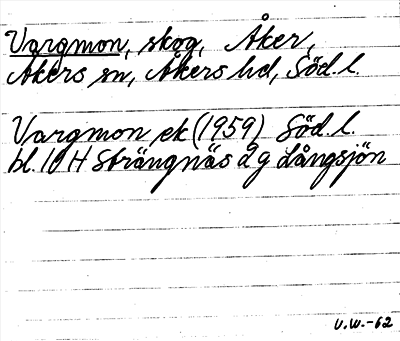 Vargmon, skog, Åker,
Åkers sn, Åkers hd, Söd.l.
Vargmon ek (1959) Söd.l.
bl. 10 H Strängnäs 2 g Långsjön
V.W.-62